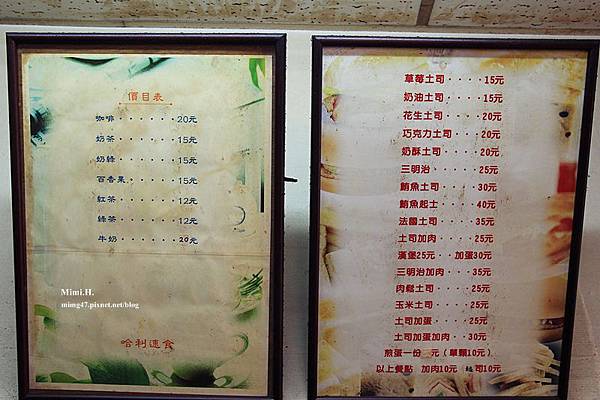 價目表
咖啡・・・・・・・20元
奶茶・・・・・・・15元
奶綠・・・・・・・15元
百香果・・・・・・15元
紅茶・・・・・・・12元
綠茶・・・・・・・12元
牛奶・・・・・・・20元
Mimi.H.
mimg47.pixnet.net/blog
哈利速食
草莓土司・・・・15元
奶油土司・・・・15元
花生土司・・・・20元
巧克力土司・・・20元
奶酥土司・・・・20元
三明治・・・・・25元
鮪魚土司・・・・30元
鮪魚起士・・・・40元
法國土司・・・・35元
土司加肉・・・・25元
漢堡25元・・加蛋30元
三明治加肉・・・35元
肉鬆土司・・・・25元
玉米土司・・・・25元
土司加蛋・・・・25元
土司加蛋加肉・・30元
煎蛋一份 元（單顆10元）
以上餐點 加肉10元 司10元